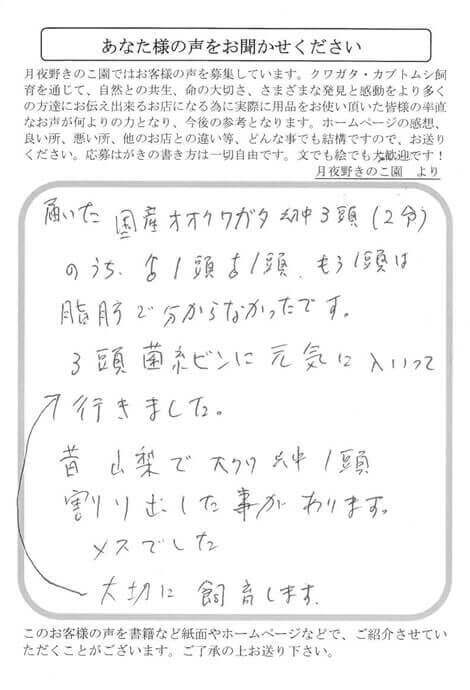 あなた様の声をお聞かせください
月夜野きのこ園ではお客様の声を募集しています。クワガタ・カブトムシ飼
育を通じて、自然との共生、命の大切さ、さまざまな発見と感動をより多く
の方達にお伝え出来るお店になる為に実際に用品をお使い頂いた皆様の率直
なお声が何よりの力となり、今後の参考となります。ホームページの感想、
良い所、悪い所、他のお店との違い等、どんな事でも結構ですので、お送り
ください。応募はがきの書き方は一切自由です。文でも絵でも大歓迎です！
月夜野きのこ園　より
届いた 国産オオクワガタ 幼虫3頭(2令)
のうち、♂1頭♀1頭、もう1頭は
脂肪で分からなかったです。
3頭菌糸ビンに元気に入いって
行きました。
昔 山梨で 大クワ 幼虫1頭
割り出した事があります。
メスでした
大切に 飼育します。
このお客様の声を書籍など紙面やホームページなどで、ご紹介させてい
ただくことがございます。ご了承の上お送り下さい。